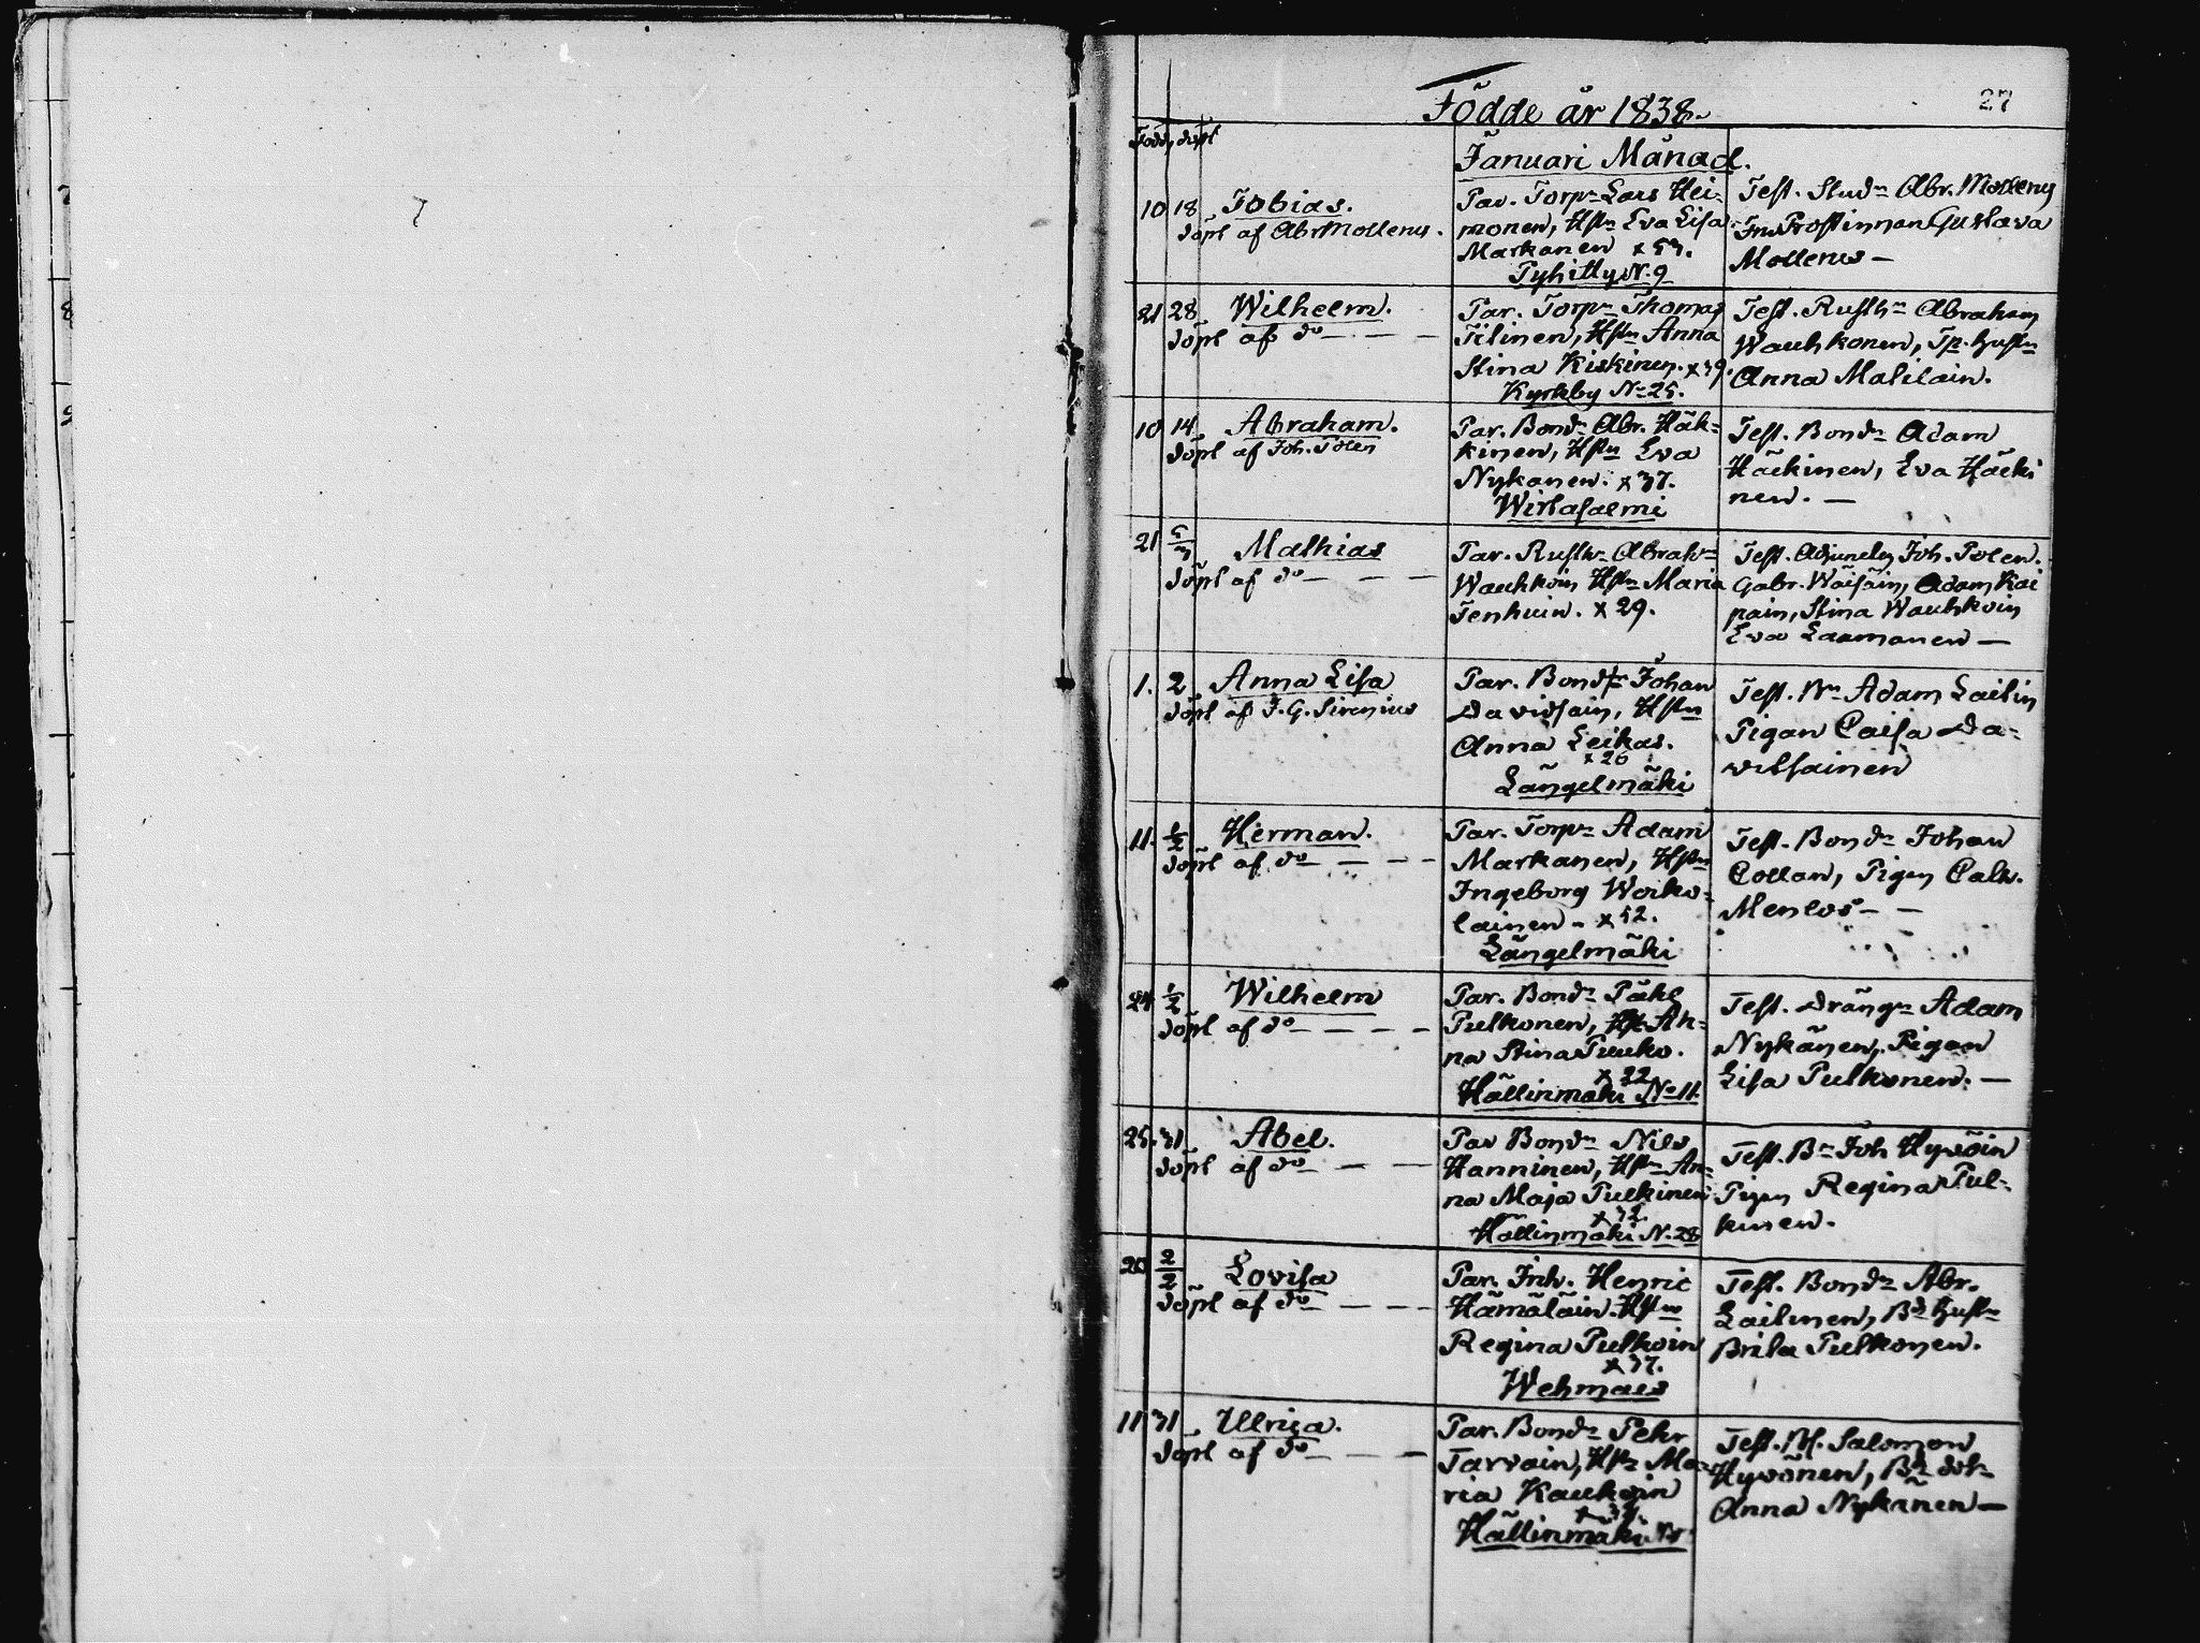 Födde år 1838.
27
Född, döpt
Januari Månad.
10 18 Tobias.
döpt af Abr Mollerus.
Par. Torpn Lars Hei-
monen, Hstn Eva Lisa
Markanen x 53.
Pyhitty N. 9
Test. Studn Abr. Mollerus
Fru Prostinnan Gustava
Mollerus —
21 28 Wilhelm.
döpt af do — — —
Par. Torpn Thomas
Tilinen, Hstn Anna
Stina Kiskinen. x 39.
Kyrkby No 25.
Test. Rusth Abraham
Wauhkonen, Tp. hustn
Anna Malilain.
10 14 Abraham.
döpt af Joh. Polen
Par. Bondn Abr. Häk-
kinen, Hstn Eva
Nykanen. x 37.
Wirtasalmi
Test. Bondn Adam
Häckinen, Eva Häcki
nen. —
21 5/3 Mathias
döpt af do — — —
Par. Rusth. Abrah
Wauhkoin Hstn Maria
Tenhuin. x 29.
Test. Adjuncten Joh. Polen.
Gabr. Wäisäin, Adam Kai
pain, Stina Wauhkoin
Eva Laamanen —
1. 2 Anna Lisa
döpt af J. G. Sirenius
Par. Bonds Johan
Davidsain, Hstn
Anna Leikas.
x 26
Längelmäki
Test. Adam Laitin
Pigan Caisa Da-
vidsainen
11. 1/2 Herman.
döpt af do — — —
Par. Torpn Adam
Markanen, Hstn
Ingeborg Woiko-
lainen - x 52.
Längelmäki
Test. Bondn Johan
Collan, Pigan Cath.
Menlös — —
24 1/2 Wilhelm
döpt af do — — — —
Par. Bondn Påhl
Pulkonen, Hst An-
na Stina Puuko.
x 32
Hällinmäki No 11.
Test. Drängn Adam
Nykänen, Pigan
Lisa Pulkonen. —
25. 31 Abel.
döpt af do — — —
Par Bondn Nils
Hanninen, Hstn An-
na Maja Pulkinen
x 32.
Hällinmäki N. 28
Test. Bn Joh Hyvöin
Pigan Regina Pul-
kinen.
20 2/2 Lovisa
döpt af do — — —
Par. Inh. Henric
Hämäläin. Hstn
Regina Pulkoin
x 37.
Wehmais
Test. Bondn Abr.
Laitinen, Bd hustn
Brita Pulkonen.
11 31 Ulrica.
döpt af do — — —
Par. Bondn Pehr
Tarvain, Hstn Ma-
ria Kaukoin
Hällinmäki
Test. Salomon
Hyvönen, Bd dotn
Anna Nykänen —